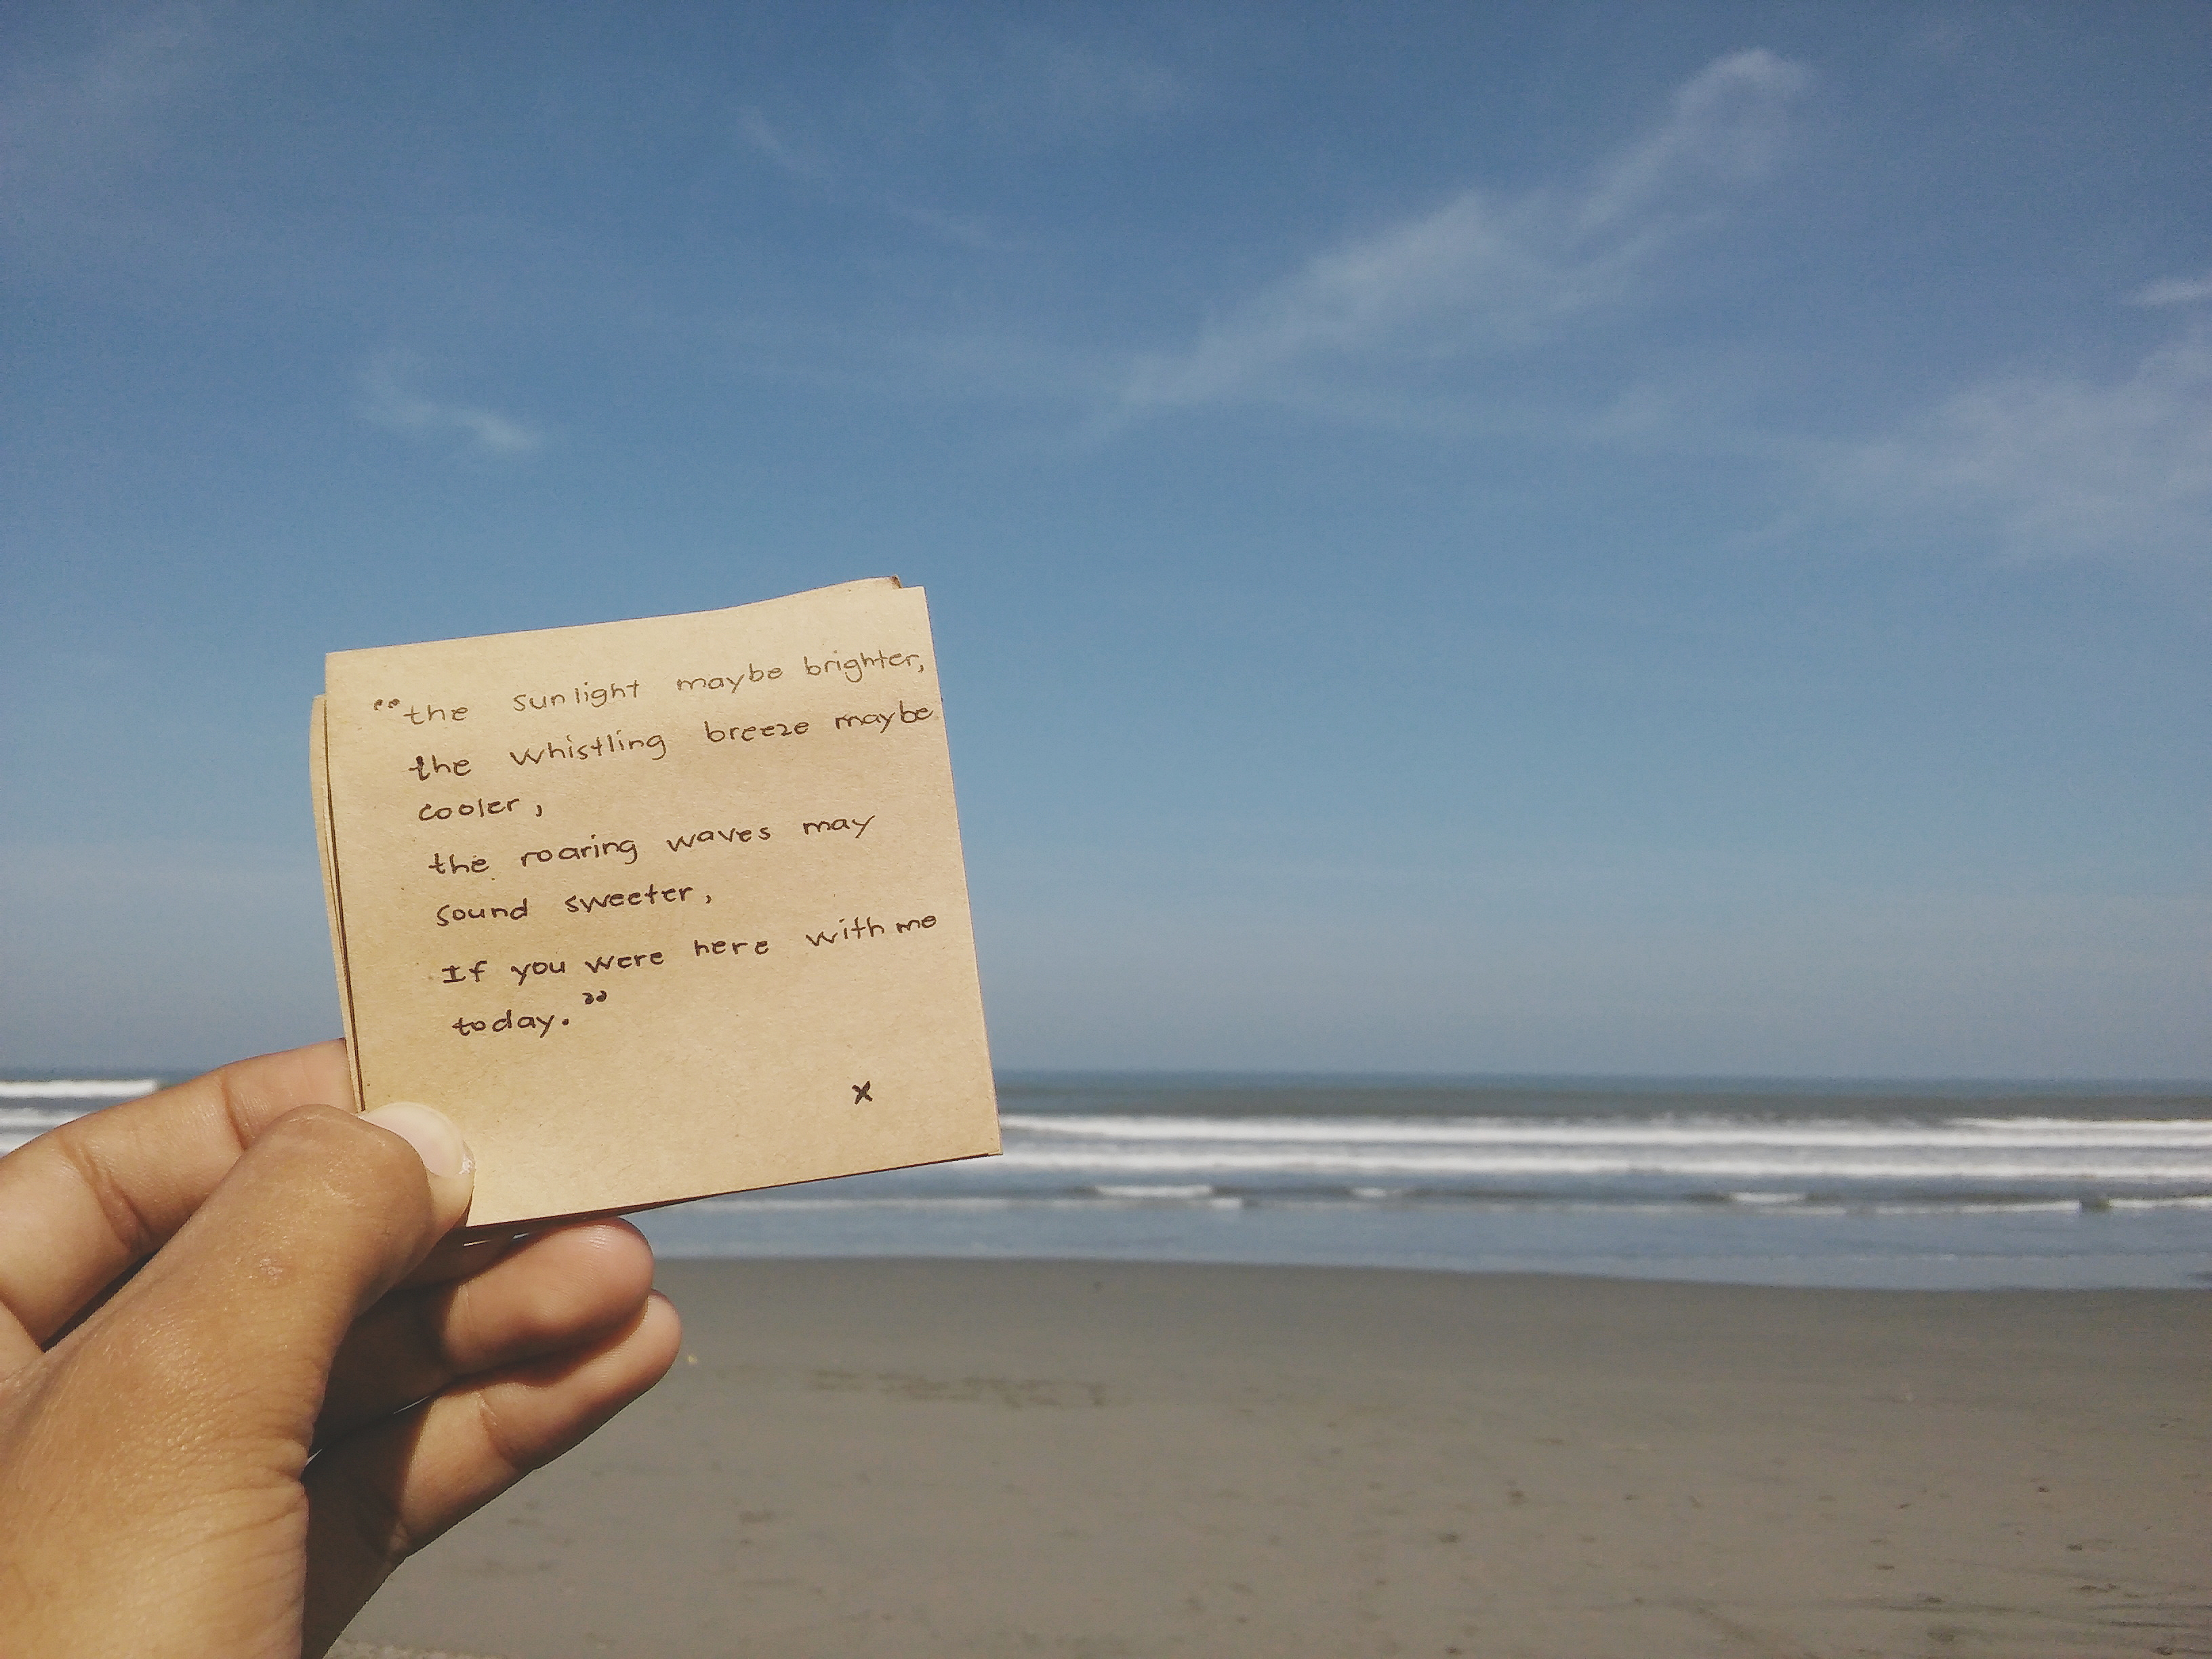 “the sunlight maybe brighter,
the whistling breeze maybe
cooler,
the roaring waves may
sound sweeter,
If you were here with me
today.”
x